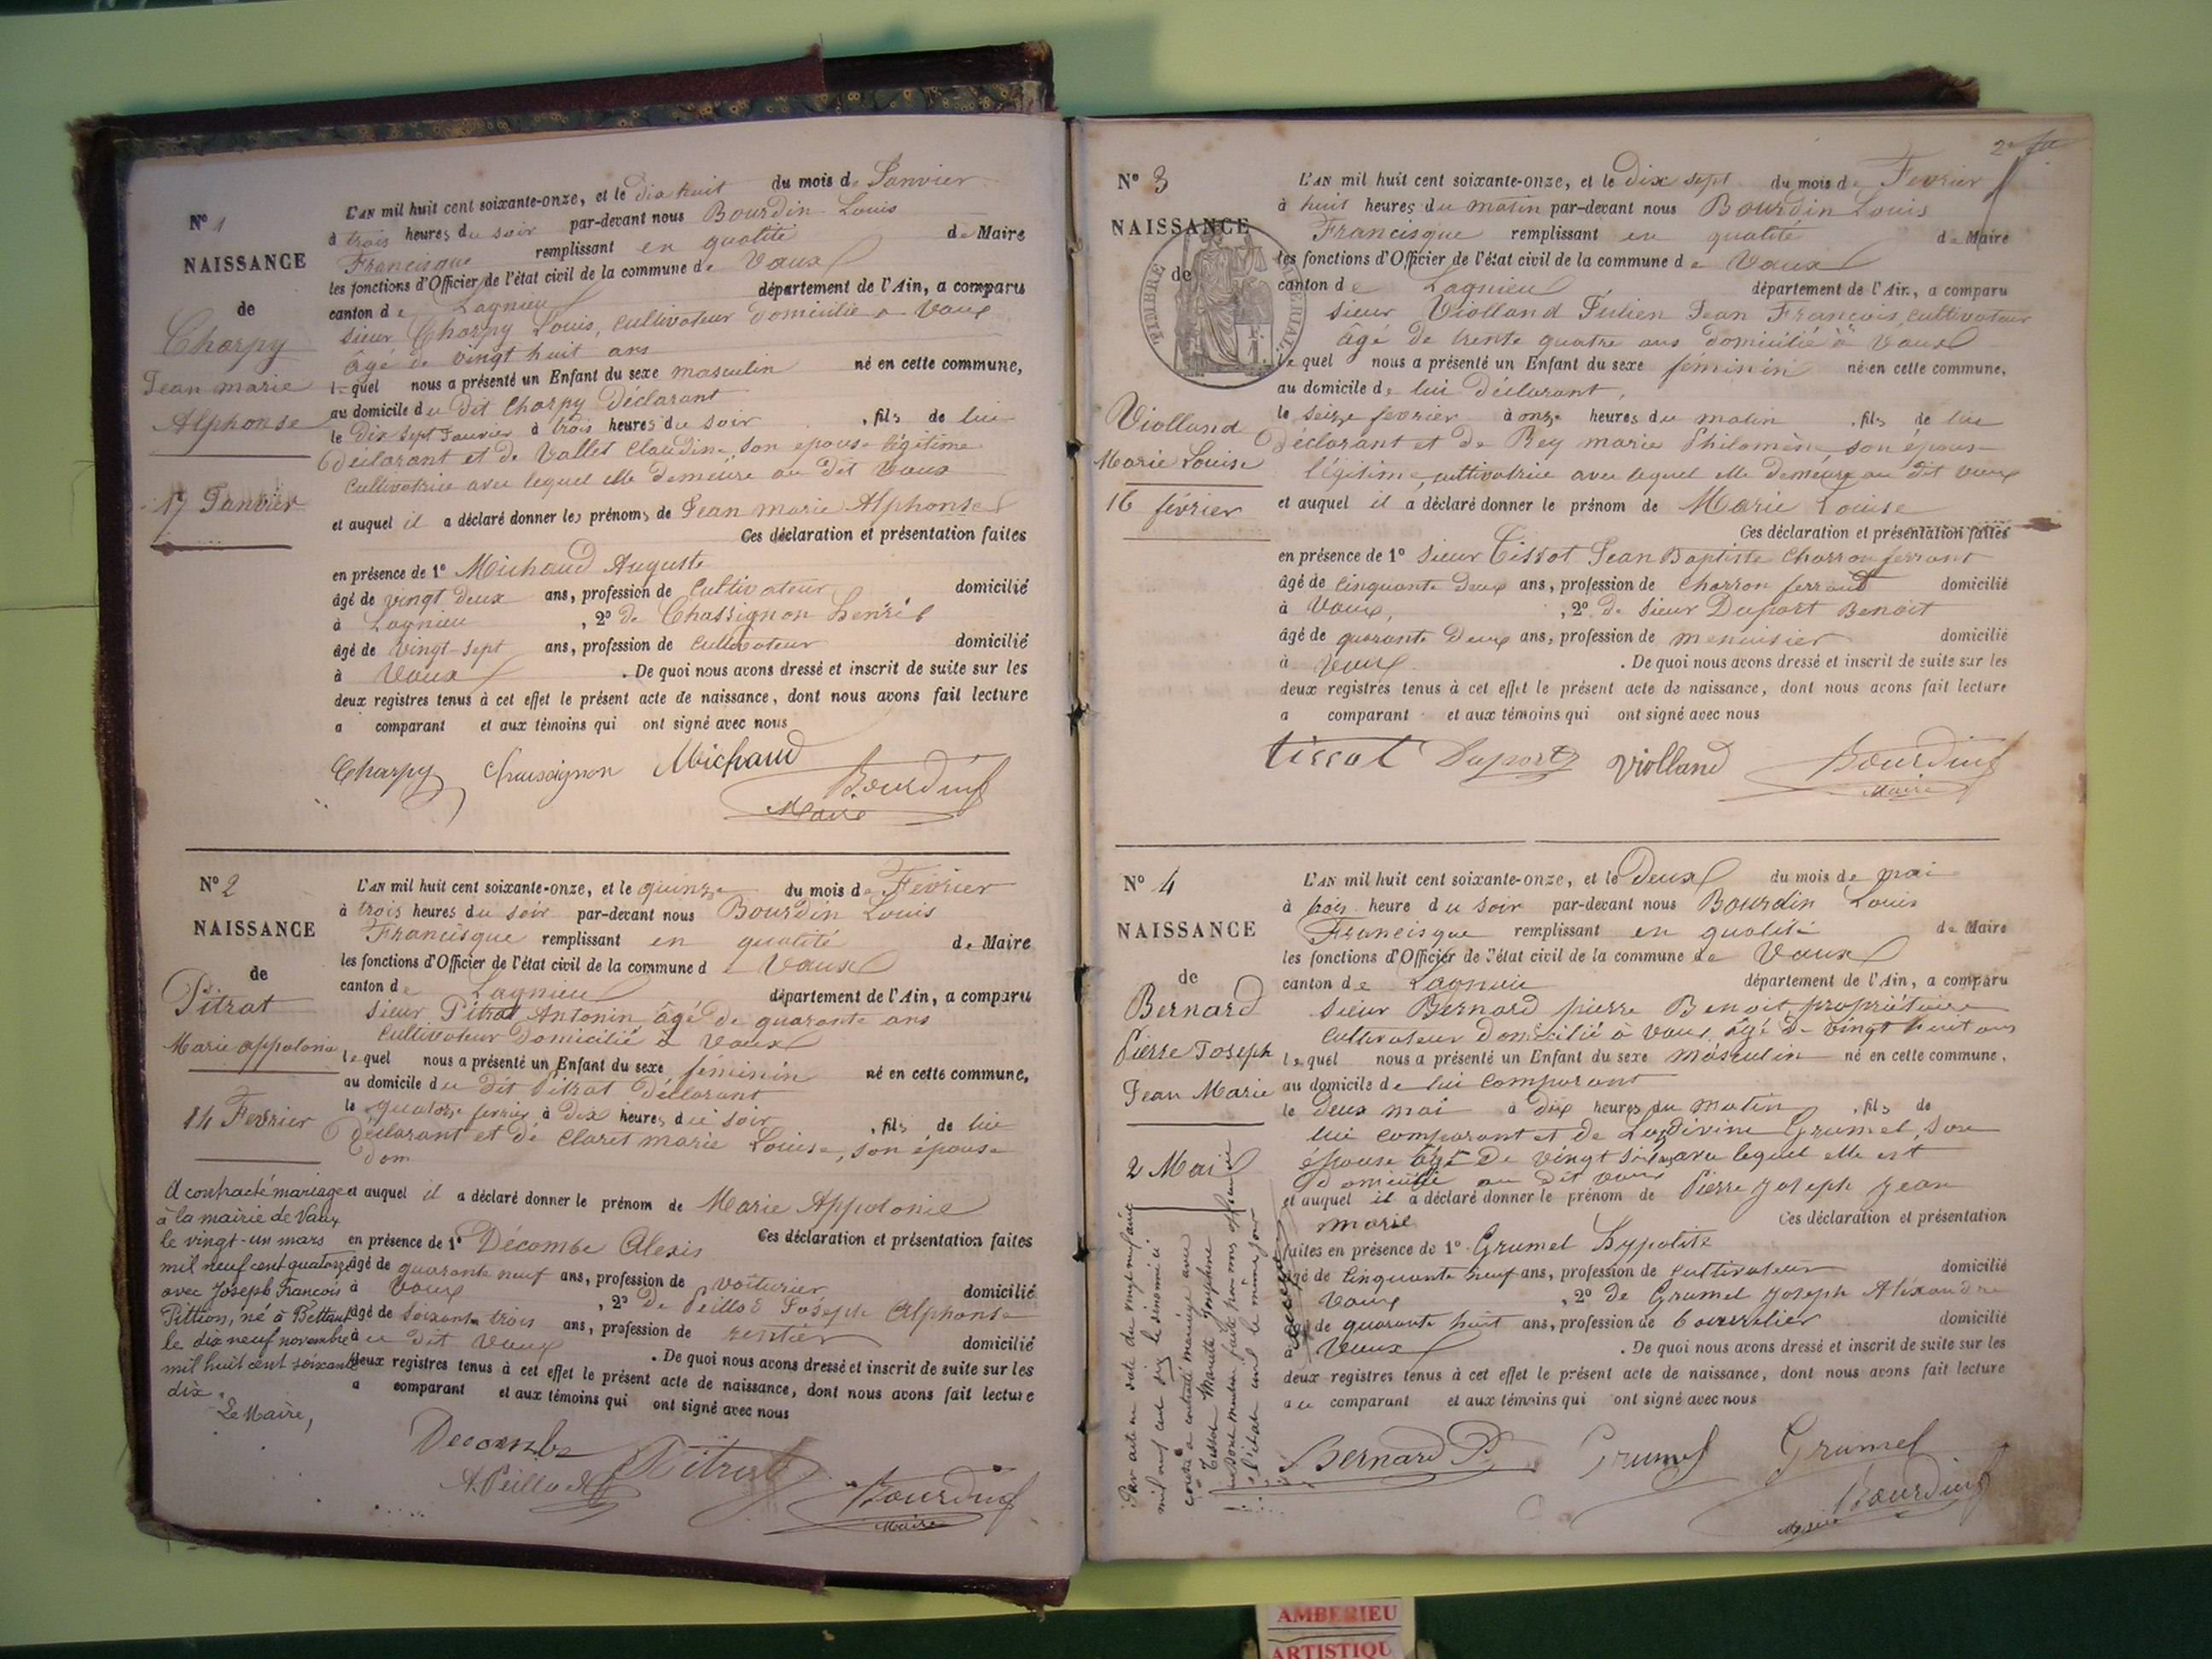 N° 1
NAISSANCE
de
Charpy
Jean marie
Alphonse
17 Janvier
L'AN mil huit cent soixante-onze, et le dix huit du mois de Janvier
à trois heures du soir par-devant nous Bourdin Louis
Francisque remplissant en qualité de Maire
les fonctions d'Officier de l'état civil de la commune de Vaux
canton de Lagnieu département de l'Ain, a comparu
sieur Charpy Louis, cultivateur domicilié à Vaux
âgé de vingt huit ans
lequel nous a présenté un Enfant du sexe masculin né en cette commune,
au domicile du dit Charpy déclarant
le dix sept Janvier à trois heures du soir, fils de lui
déclarant et de Vallet Claudine son épouse légitime
cultivatrice avec lequel elle demeure au dit Vaux
et auquel il a déclaré donner les prénoms de Jean marie Alphonse
Ces déclaration et présentation faites
en présence de 1° Michaud Auguste
âgé de vingt deux ans, profession de cultivateur domicilié
à Lagnieu, 2° de Chassignon henri
âgé de vingt-sept ans, profession de cultivateur domicilié
à Vaux. De quoi nous avons dressé et inscrit de suite sur les
deux registres tenus à cet effet le présent acte de naissance, dont nous avons fait lecture
a comparant et aux témoins qui ont signé avec nous
Charpy Chassignon Michaud Bourdin
Maire
N° 2
NAISSANCE
de
Pitrat
Marie appolonie
14 Fevrier
A contracté mariage
à la mairie de Vaux
le vingt-un mars
mil neuf cent quatorze
avec Joseph François
Pittion, né à Bettant
le dix neuf novembre
mil huit cent soixante
dix.
Le Maire,
L'AN mil huit cent soixante-onze, et le quinze du mois de Février
à trois heures du soir par-devant nous Bourdin Louis
Francisque remplissant en qualité de Maire
les fonctions d'Officier de l'état civil de la commune de Vaux
canton de Lagnieu département de l'Ain, a comparu
sieur Pitrat Antonin âgé de quarante ans
cultivateur domicilié à Vaux
lequel nous a présenté un Enfant du sexe féminin né en cette commune,
au domicile du dit Pitrat déclarant
le quatorze fevrier à dix heures du soir, fils de lui
déclarant et de Claret marie Louise, son épouse
dom
et auquel il a déclaré donner le prénom de Marie Appolonie
Ces déclaration et présentation faites
en présence de 1° Décombe Alexis
âgé de quarante neuf ans, profession de voiturier domicilié
à Vaux, 2° de Peillod Joseph Alphonse
âgé de soixante trois ans, profession de rentier domicilié
à au dit Vaux. De quoi nous avons dressé et inscrit de suite sur les
deux registres tenus à cet effet le présent acte de naissance, dont nous avons fait lecture
a comparant et aux témoins qui ont signé avec nous
Decombe
A. Peillod Pitrat Bourdin
Maire
N° 3
NAISSANCE
de
TIMBRE
Violland
Marie Louise
16 février
L'AN mil huit cent soixante-onze, et le dix sept du mois de Fevrier
à huit heures du matin par-devant nous Bourdin Louis
Francisque remplissant en qualité de Maire
les fonctions d'Officier de l'état civil de la commune de Vaux
canton de Lagnieu département de l'Ain, a comparu
sieur Violland Julien Jean François, cultivateur
âgé de trente quatre ans domicilié à Vaux
lequel nous a présenté un Enfant du sexe féminin né en cette commune,
au domicile de lui déclarant,
le seize fevrier à onze heures du matin, fils de lui
déclarant et de Rey marie Philomène son épouse
légitime, cultivatrice avec lequel elle demeure au dit vaux
et auquel il a déclaré donner le prénom de Marie Louise
Ces déclaration et présentation faites
en présence de 1° sieur Tissot Jean Baptiste charron ferrant
âgé de cinquante deux ans, profession de charron ferrant domicilié
à Vaux, 2° de sieur Duport Benoit
âgé de quarante deux ans, profession de menuisier domicilié
à Vaux. De quoi nous avons dressé et inscrit de suite sur les
deux registres tenus à cet effet le présent acte de naissance, dont nous avons fait lecture
a comparant et aux témoins qui ont signé avec nous
tissot Duport Violland Bourdin
Maire
N° 4
NAISSANCE
de
Bernard
Pierre Joseph
Jean Marie
2 Mai
L'AN mil huit cent soixante-onze, et le deux du mois de mai
à trois heure du soir par-devant nous Bourdin Louis
Francisque remplissant en qualité de Maire
les fonctions d'Officier de l'état civil de la commune de Vaux
canton de Lagnieu département de l'Ain, a comparu
sieur Bernard pierre Benoit propriétaire
cultivateur domicilié à vaux, âgé de vingt huit ans
lequel nous a présenté un Enfant du sexe masculin né en cette commune,
au domicile de lui comparant
le deux mai à dix heures du matin, fils de
lui comparant et de Grumel, son
épouse âgé de vingt avec lequel elle est
domicilié au dit vaux
et auquel il a déclaré donner le prénom de Pierre Joseph Jean
marie Ces déclaration et présentation
faites en présence de 1° Grumel hypolite
âgé de cinquante neuf ans, profession de cultivateur domicilié
Vaux, 2° de Grumel Joseph Aléxandre
âgé de quarante huit ans, profession de bourrelier domicilié
à Vaux. De quoi nous avons dressé et inscrit de suite sur les
deux registres tenus à cet effet le présent acte de naissance, dont nous avons fait lecture
au comparant et aux témoins qui ont signé avec nous
Bernard P. Grumel Grumel
Bourdin
Maire
Par acte en date du vingt
mil neuf cent dix le dénommé ci
contre a contracté mariage avec
Tissot Josephine
AMBERIEU
ARTISTIQU